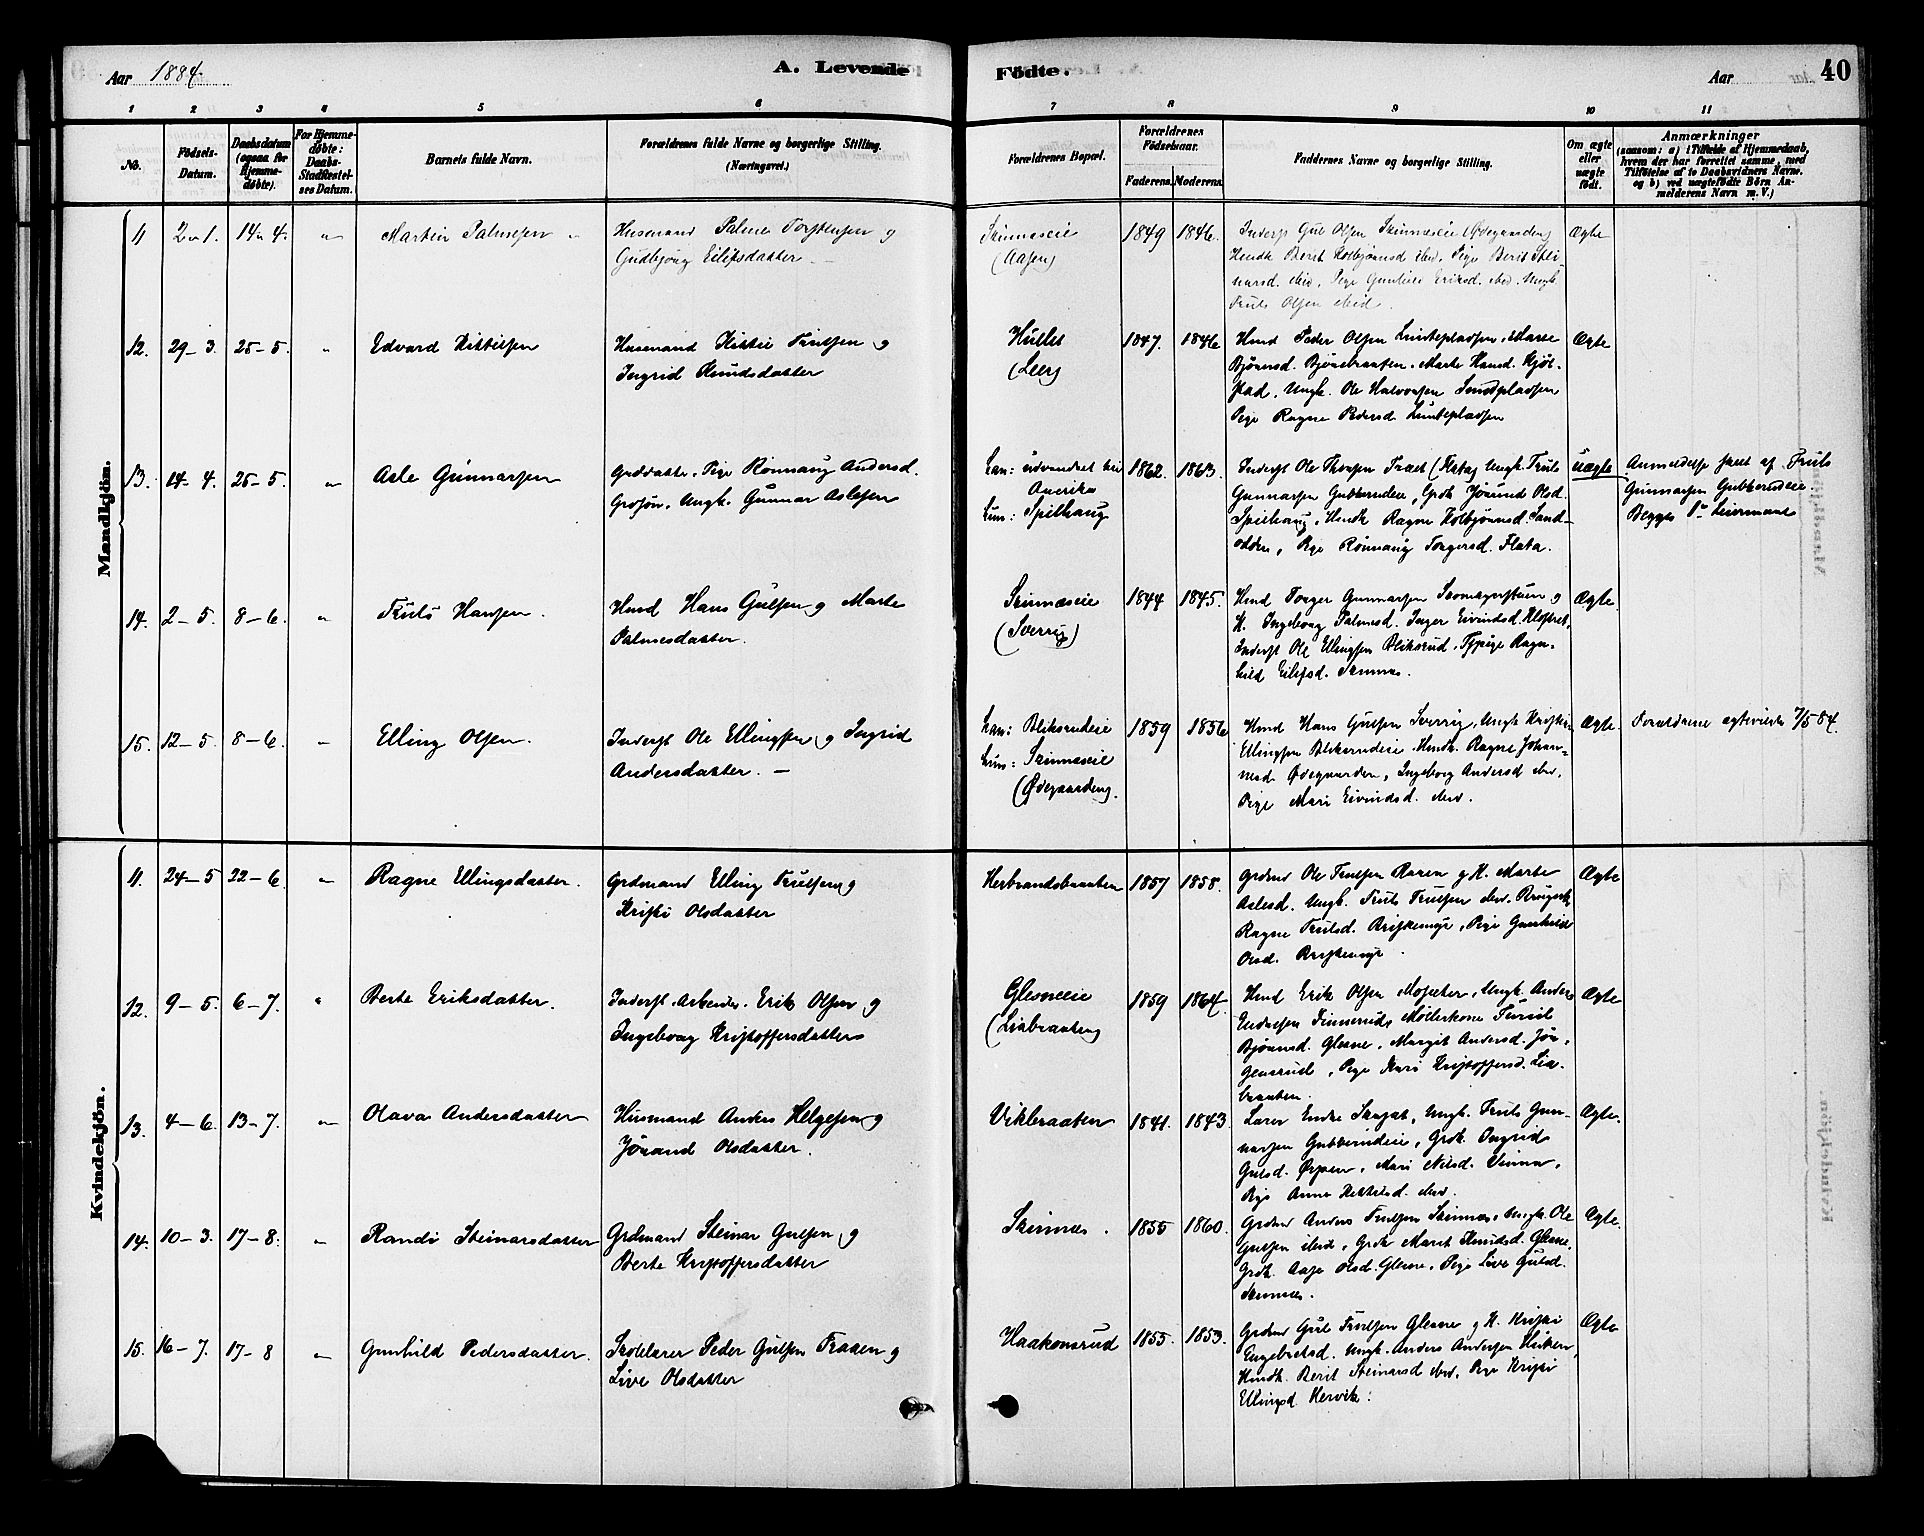 Aar 1884.
A. Levende Födte.
Aar
40
1 2 3 4 5 6 7 8 9 10 11
No.
Födsels-Datum.
Daabsdatum (ogsaa for Hjemme-döbte).
For Hjemme-döbte: Daabs-Stadfæstel-ses Datum.
Barnets fulde Navn.
Forældrenes fulde Navne og borgerlige Stilling.
(Næringsvei.)
Forældrenes Bopæl.
Forældrenes Födselsaar.
Faderens. Moderens.
Faddernes Navne og borgerlige Stilling.
Om ægte eller uægte födt.
Anmærkninger
(saasom: a) i Tilfælde af Hjemmedaab,
hvem der har forrettet samme, med
Tilföielse af to Daabsvidners Navne.
og b) ved uægtefödte Börn An-
melderens Navn m. V.)
Mandkjön.
11 2-1. 14-4. " Martin Palmesen Husmand Palme Torstensen og
Gudbjørg Eilifsdatter
Skinnæseie
(Aasen)
1849 1846.
Inderst Gul Olsen Skinnæseie (Ødegaarden)
Hmdk Berit Kolbjørnsd. ibid. Pige Berit Stei-
narsd. ibid. Pige Gunhild Eriksd. ibid. Ungk.
Truls Olsen ibid.
Ægte
12. 29-3. 25-5. " Edvard Kittilsen Husmand Kittil Trulsen og
Ingrid Knudsdatter
Hullet
(Leer)
1847. 1846
Hmd Peder Olsen
Bjørnsd. Bjønebraaten. Marte Hansd.
Ungk. Ole Halvorsen
Pige Ragne Pedersd.
Ægte
13. 14-4. 25-5. " Asle Gunnarsen Grddatter, Pige Rønnaug Andersd.
Grdsøn, Ungk. Gunnar Aslesen
Han: udvandret til
Amerika
Hun: Spilhaug
1862. 1863.
Inderst Ole
Ungk. Truls
Gunnarsen Gubberudeie, Grdk Jørund Olsd.
Spilhaug, Hmdk Ragne Kolbjørnsd. Sand-
odden, Pige Rønnaug Torgersd. Flata.
uægte
Anmeldelse skeet af Truls
Gunnarsen Gubberudeie.
Begges 1ste Leiermaal
14. 2-5. 8-6. " Truls Hansen. Hmd Hans Gulsen og Marte
Palmesdatter.
Skinnæseie
(Sverrig)
1844 1845.
Hmd Torger Gunnarsen og
K. Ingeborg Palmesd. Inger Eivindsd. Klostret,
Inderst Ole Ellingsen Bliksrud, Tjpige Ragn-
hild Eilifsd. Skinnæs.
Ægte
15. 12-5. 8-6. " Elling Olsen. Inderst Ole Ellingsen og Ingrid
Andersdatter.
Han: Bliksrudeie
Hun: Skinnæseie
(Ødegaarden).
1859 1856
Hmd Hans Gulsen Sverrig, Ungk Kristen
Ellingsen Bliksrudeie. Hmdk. Ragne Johan-
nesd Ødegaarden, Ingeborg Andersd ibid.
Pige Mari Eivindsd. ibid.
Ægte.
Forældrene ægteviede 7/5 84.
Kvindekjön.
11. 24-5 22-6. " Ragne Ellingsdatter. Grdmand Elling Trulsen og
Kristi Olsdatter
Herbrandsbraaten
1857 1858.
Grdmd Ole Trulsen Raaen og K. Marte
Aslesd. Ungk. Truls Trulsen ibid.
Ragne Trulsd. Briskemyr, Pige Gunhild
Olsd. Briskemyr.
Ægte
12. 9-5. 6-7. " Berte Eriksdatter. Inderst, Arbeider. Erik Olsen og
Ingeborg Kristoffersdatter
Glesneeie
(Liabraaten)
1859 1864.
Hmd Erik Olsen Ungk. Anders
Endresen Finnerud, Møllerkone
Bjørnsd. Glesne, Margit Andersd. Jør-
genrud, Pige Kari Kristoffersd. Lia-
braaten.
Ægte
13. 4-6. 13-7. " Olava Andersdatter Husmand Anders Helgesen og
Jørand Olsdatter.
Vikbraaten
1841. 1843.
Lærer Endre Ungk. Truls Gun-
narsen Gubberudeie, Grdk. Ingrid
Gulsd. Ørpen, Mari Nilsd.
Pige Anne Kittilsd. ibid.
Ægte.
14. 10-3. 17-8. " Randi Steinarsdatter Grdmand Steinar Gulsen og
Berte Kristoffersdatter
Skinnæs.
1855 1860.
Grdmd Anders Trulsen Skinnæs, Ungk. Ole
Gulsen ibid, Grdk Marit Knudsd. Glesne,
Grdk. Aase Olsd. Glesne, Pige Live Gulsd.
Skinnæs.
Ægte.
15. 16-7. 17-8 " Gunhild Pedersdatter. Skolelærer Peder Gulsen Traaen og
Live Olsdatter
Haakonsrud
1855. 1853.
Grdmd Gul Trulsen Glesne og K. Kristi
Engebretsd. Ungk. Anders Andersen
Hmdk. Berit Steinarsd ibid, Pige Kristi
Ellingsd. Hervik.
Ægte